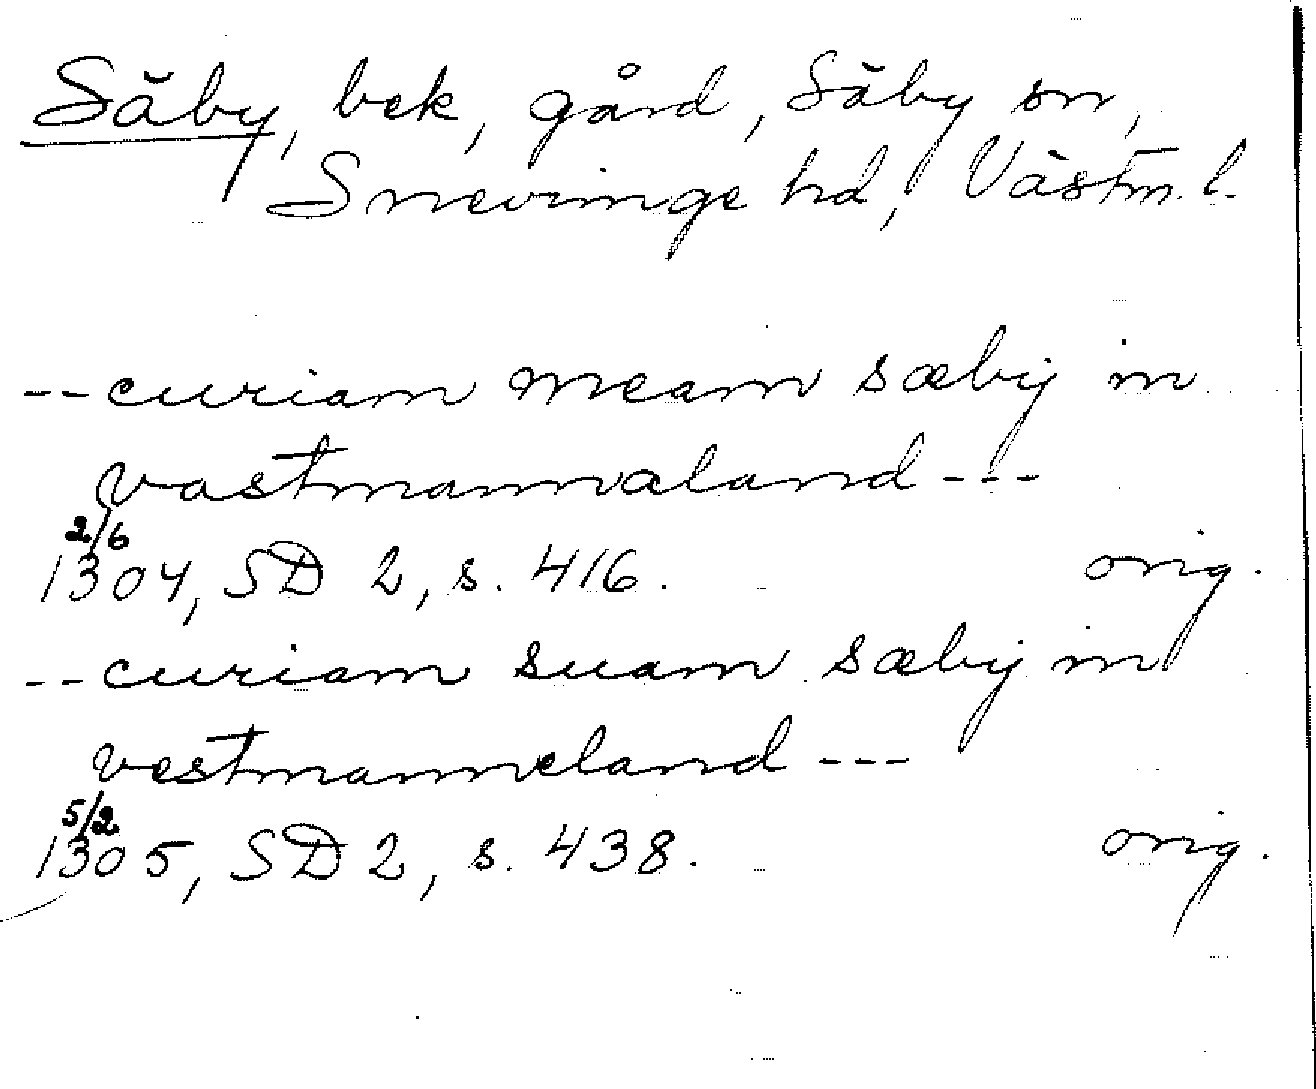 Säby, bek, gård, Säby sn,
Snevringe hd, Västm. l.
--curiam meam sæby in
vastmannaland---
2/6
1304, SD 2, s. 416. orig.
--curiam suam sæby in
vestmanneland---
5/2
1305, SD 2, s. 438. orig.